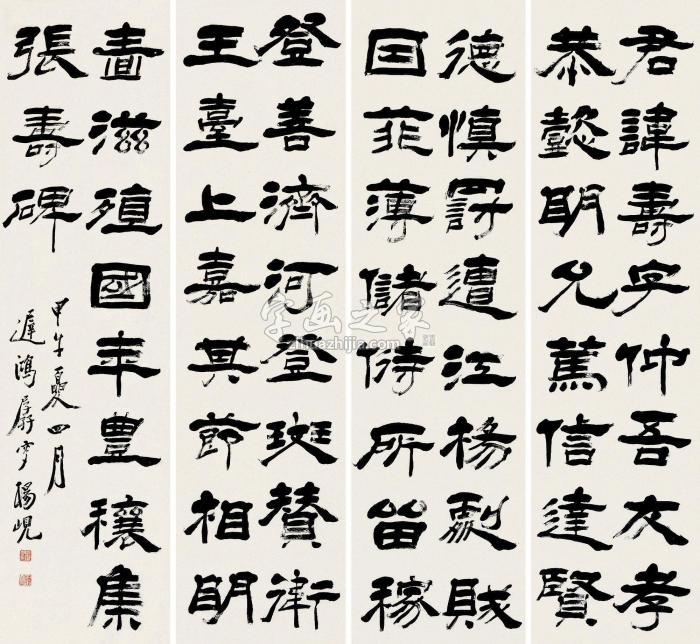 君諱壽字仲吾友孝
恭懿明允篤信達賢
德慎罰遭江楊劇賊
国菲薄儲偫所畱稼
登善濟河登斑賛衛
王臺上嘉其節相明
畫滋殖國年豊穰集
張壽碑
甲午夏四月
遲鴻楊峴
字画之家